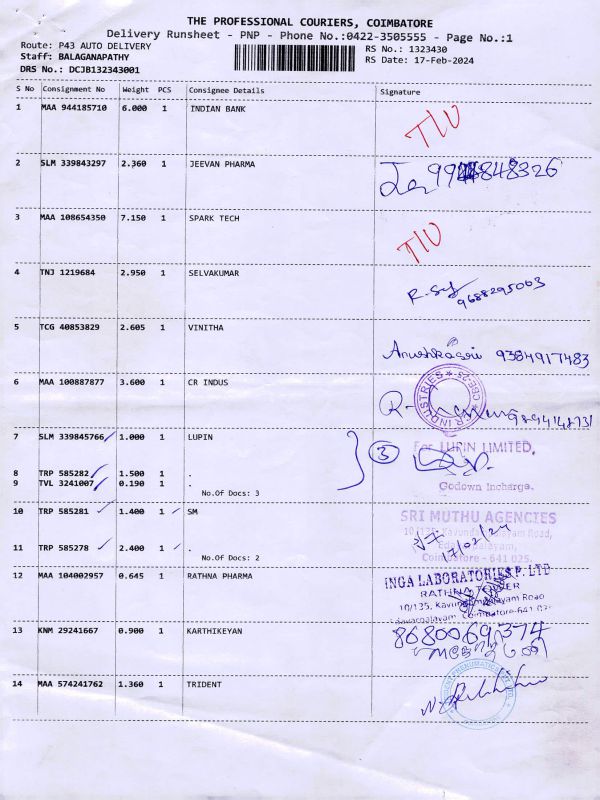 THE PROFESSIONAL COURIERS, COIMBATORE
Delivery Runsheet - PNP - Phone No.:0422-3505555 - Page No.:1
Route: P43 AUTO DELIVERY RS No.: 1323430
Staff: BALAGANAPATHY RS Date: 17-Feb-2024
DRS No.: DCJB132343001
S No Consignment No Weight PCS Consignee Details Signature
1 MAA 944185710 6.000 1 INDIAN BANK
2 SLM 339843297 2.360 1 JEEVAN PHARMA
3 MAA 108654350 7.150 1 SPARK TECH
4 TNJ 1219684 2.950 1 SELVAKUMAR
9688295003
5 TCG 40853829 2.605 1 VINITHA
9384917483
6 MAA 100887877 3.600 1 CR INDUS
7 SLM 339845766 1.000 1 LUPIN 3 For LUPIN LIMITED,
8 TRP 585282 1.500 1 .
9 TVL 3241007 0.190 1 . Godown Incharge.
No.Of Docs: 3
10 TRP 585281 1.400 1 SM SRI MUTHU AGENCIES
17/02/24
11 TRP 585278 2.400 1 . Coimbatore - 641 025.
No.Of Docs: 2
12 MAA 104002957 0.645 1 RATHNA PHARMA INGA LABORATORIES P. LTD
RATHNA TOWER
10/135, Kavundampalayam Road
13 KNM 29241667 0.900 1 KARTHIKEYAN 8680069374
14 MAA 574241762 1.360 1 TRIDENT